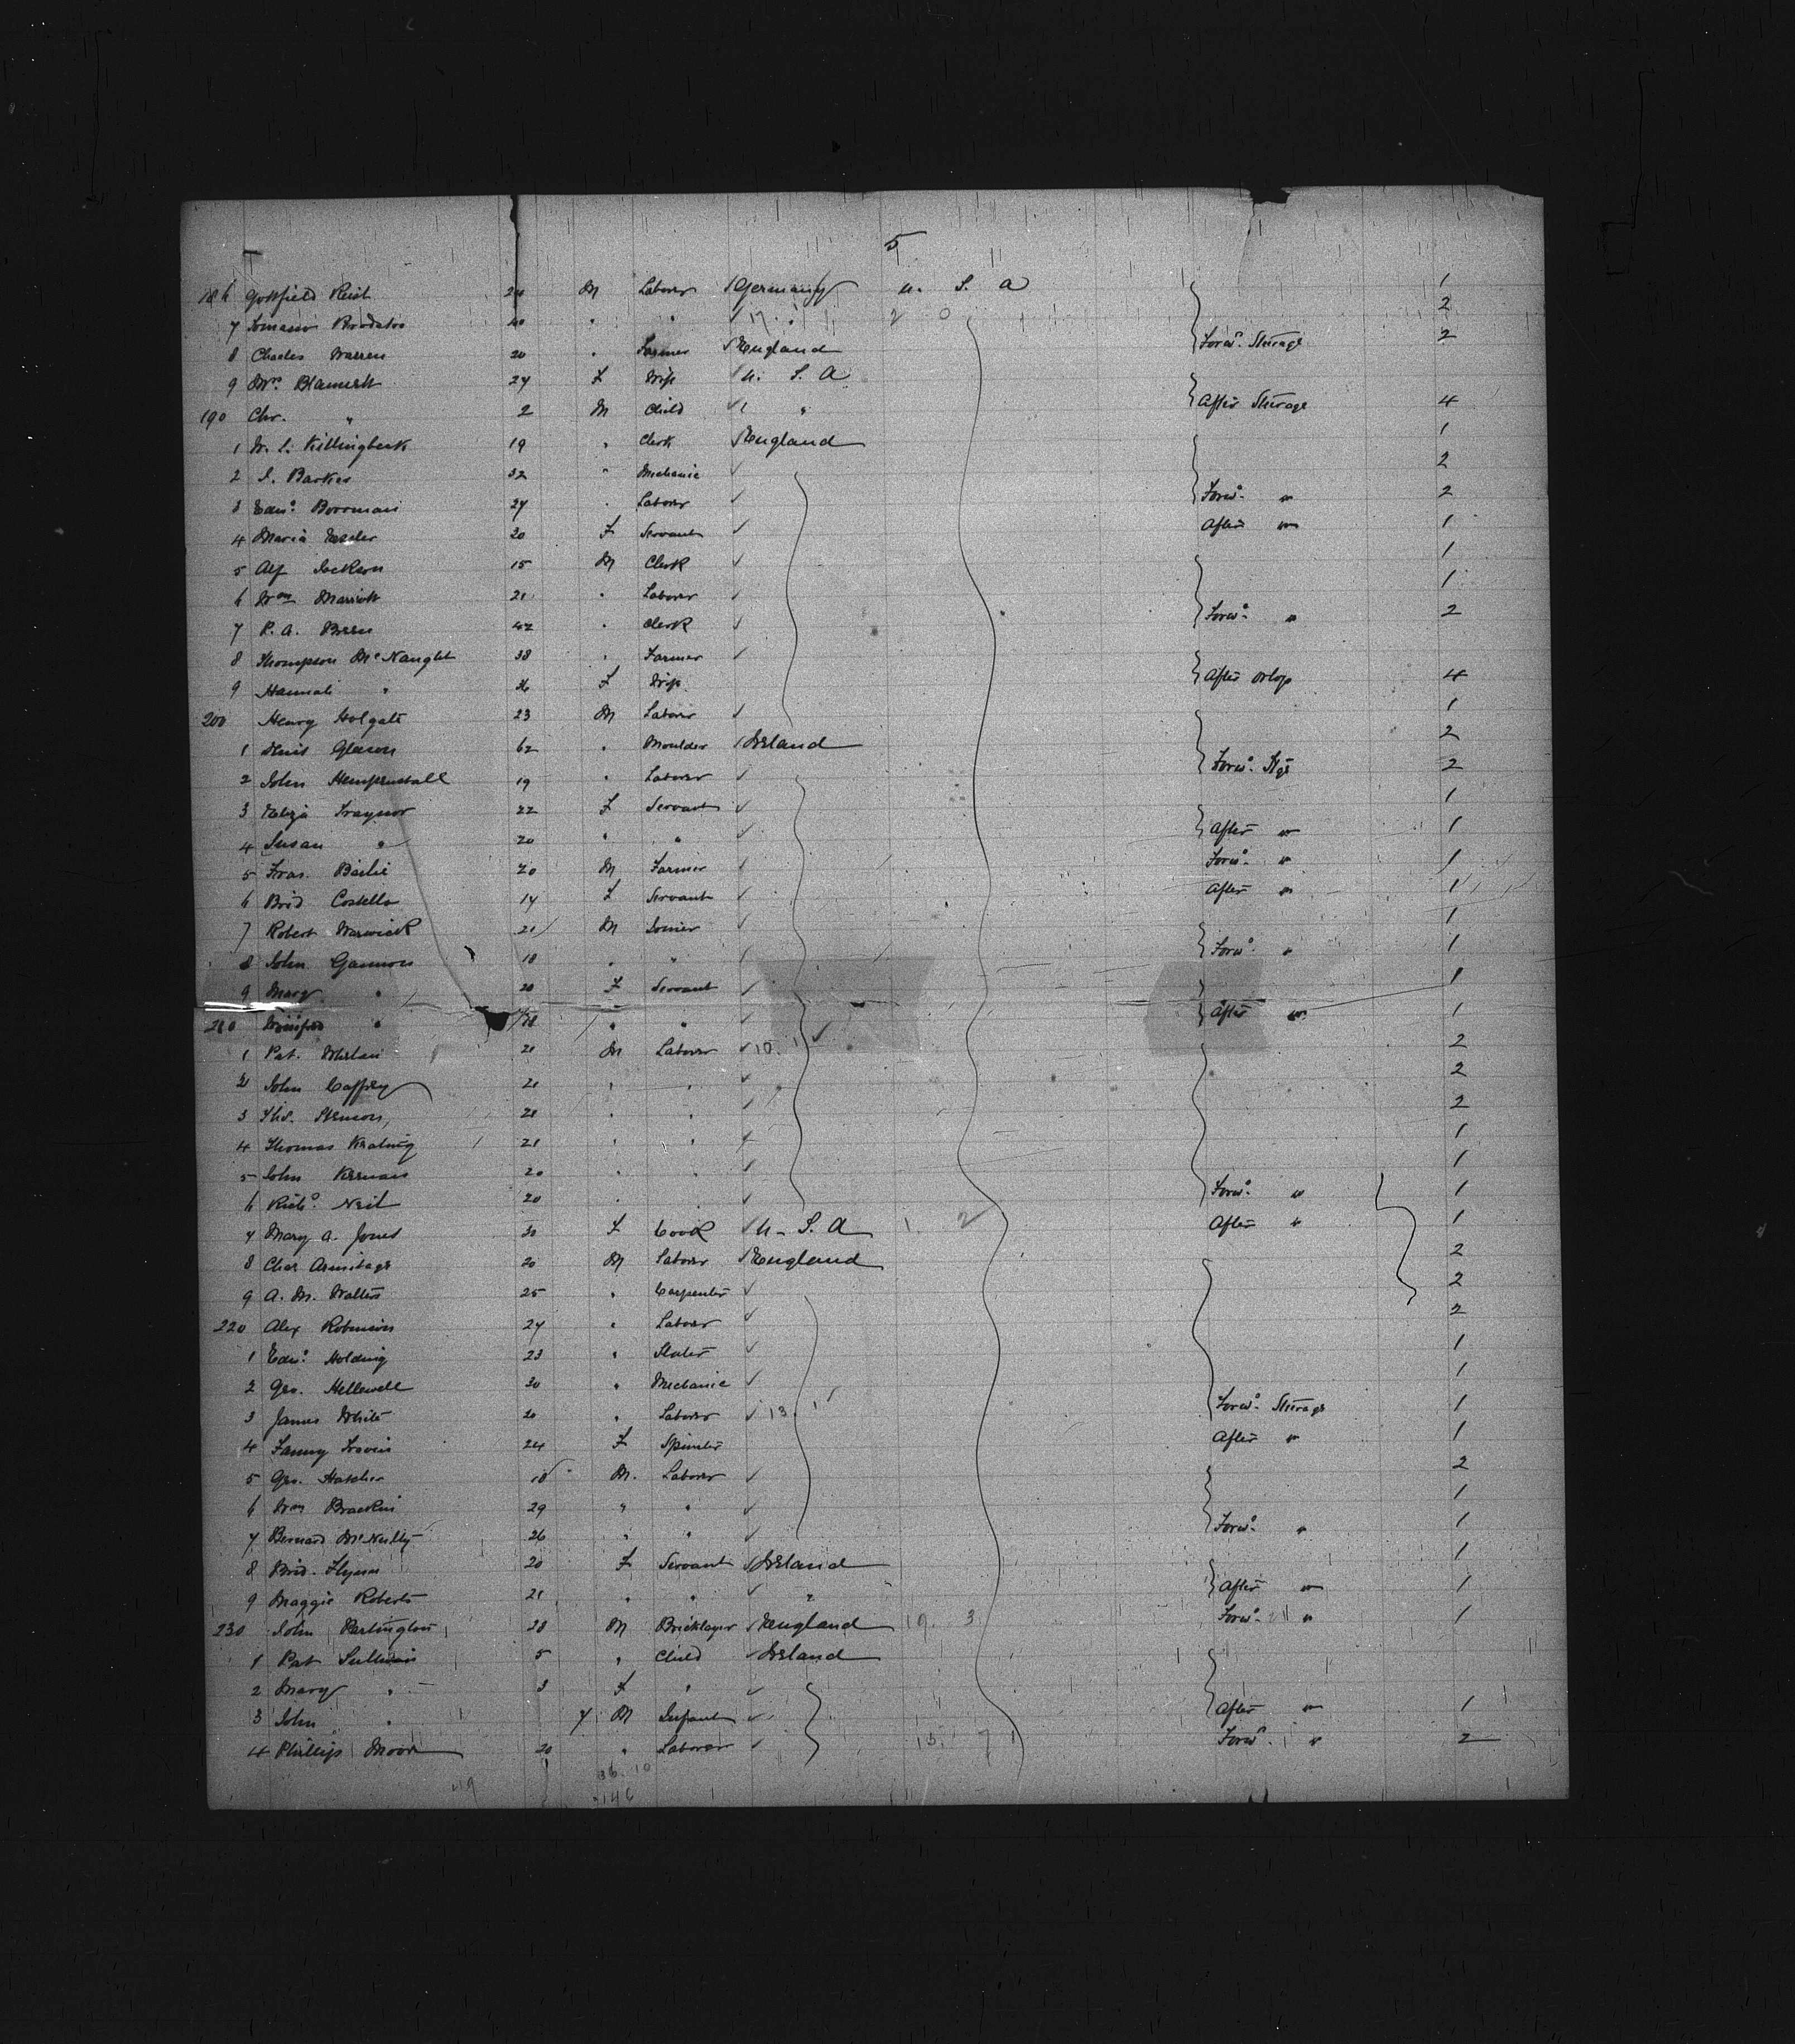 5
186 Gottfield Reist 20 M Laborer Germany U. S. A 1
7 40 " " 17. " 2 0 2
8 Charles Warren 20 " Farmer England Forwd. Steerage 2
9 Mrs. 27 F Wife U. S. A
190 Chr. " 2 M Child " After Steerage 4
1 W. S. Killingbeck 19 " Clerk England 1
2 S. Barker 32 " Mechanic 2
3 Edwd. Boorman 27 " Laborer Forwd. " 2
4 Maria 20 F Servant After " 1
5 Alf Jackson 15 M Clerk 1
6 Wm Marriott 21 " Laborer 1
7 P. A. Breen 42 " Clerk Forwd. " 2
8 Thompson McNaught 38 " Farmer
9 Hannah " 36 F Wife After Orlop 4
200 Henry Holgate 23 M Laborer 1
1 Gleason 62 " Moulder Ireland 2
2 John Hempenstall 19 " Laborer Forwd. Stge 2
3 Eliza Traynor 22 F Servant 1
4 Susan " 20 " " After " 1
5 Fras. Bailie 20 M Farmer Forwd. " 1
6 Brid Costello 17 F Servant After " 1
7 Robert Warwick 21 M Joiner 1
8 John Gannon 18 " " Forwd. " 1
9 Mary " 20 F Servant 1
210 Winifred " 18 " " After " 1
1 Pat. Whelan 21 M Laborer 10. 1 2
2 John Caffrey 21 " " 2
3 Thos. 21 " " 2
4 Thomas Keating 21 " " 1
5 John Kernan 20 " " 1
6 Richd. Neil 20 " Forwd. " 1
7 Mary A. Jones 30 F Cook U. S. A 1. 2 After " 1
8 Chas Armitage 20 M Laborer England 2
9 A. M. Walters 25 " Carpenter 2
220 Alex Robinson 27 " Laborer 2
1 Edwd. Holding 23 " Slater 1
2 Geo. Hellewell 30 " Mechanic 1
3 James White 20 " Laborer 13. 1 Forwd. Steerage 1
4 Fanny Travis 24 F Spinster After " 1
5 Geo. Hatcher 18 M. Laborer 2
6 Wm Brackin 29 " " 1
7 Bernard McNulty 26 " " Forwd. " 1
8 Brid. Flynn 20 F Servant Ireland 1
9 Maggie Roberts 21 " " " After " 1
230 John Partington 28 M Bricklayer England 19. 3 Forwd. " 1
1 Pat Sullivan 5 " Child Ireland
2 Mary " 3 F "
3 John " 7 M Infant After " 1
4 Phillip Moor 20 " Laborer 15. 7 Forwd. " 2
36. 10
146